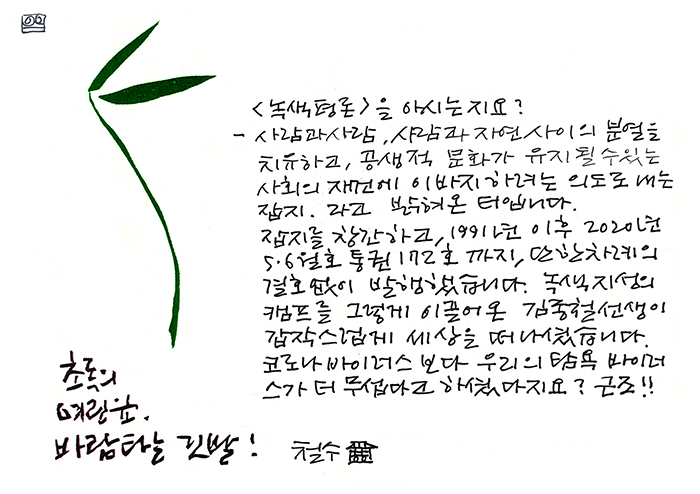 <녹색평론>을 아시는지요?
- 사람과사람, 사람과 자연사이의 분열을
치유하고, 공생적 문화가 유지될수있는
사회의 재건에 이바지하려는 의도로 내는
잡지. 라고 밝혀온 터입니다.
잡지를 창간하고, 1991년 이후 2020년
5·6월호 통권 172호 까지, 단한차례의
결호없이 발행했습니다. 녹색지성의
캠프를 그렇게 이끌어온 김종철선생이
갑작스럽게 세상을 떠나셨습니다.
코로나바이러스 보다 우리의 탐욕 바이러
스가 더 무섭다고 하셨다지요? 근조!!
초록의
여린잎.
바람타는 깃발!
철수